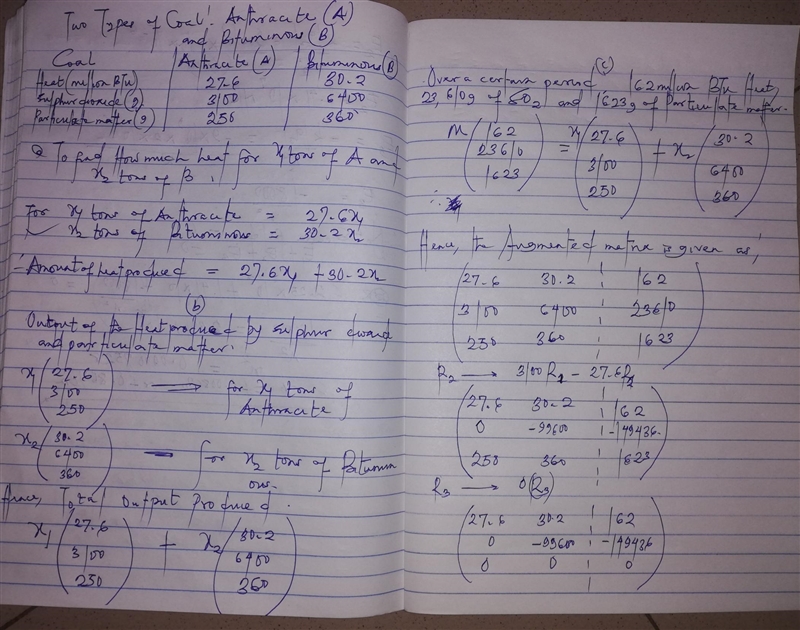 Two Types of Coal: Anthracite (A)
and Bituminous (B)
Coal | Anthracite (A) | Bituminous (B)
Heat (million Btu) 27.6 30.2
Sulphur dioxide (g) 3100 6400
Particulate matter (g) 250 360
Q To find How much heat for x1 tons of A and
x2 tons of B.
For x1 tons of Anthracite = 27.6x1
x2 tons of Bituminous = 30.2x2
Amount of heat produced = 27.6x1 + 30.2x2
(b)
Output of the Heat produced by Sulphur
and particulate matter.
x1 (27.6
3100
250)
for x1 tons of
Anthracite
x2 (30.2
6400
360)
for x2 tons of Bitumin
ous.
Hence, Total output produced.
x1 (27.6
3100
250)
+ x2 (30.2
6400
360)
(c)
Over a certain period 162 million BTU Heat,
23,610g of SO2 and 1623g of Particulate matter.
M (162
23610
1623)
= x1 (27.6
3100
250)
+ x2 (30.2
6400
360)
Hence, the Augmented matrix is given as,
27.6 30.2 162
3100 6400 23610
250 360 1623
R2 → 3100R1 - 27.6R2
27.6 30.2 162
0 -99600 -149436
250 360 1623
R3 → 0(R3)
27.6 30.2 162
0 -99600 -149436
0 0 0